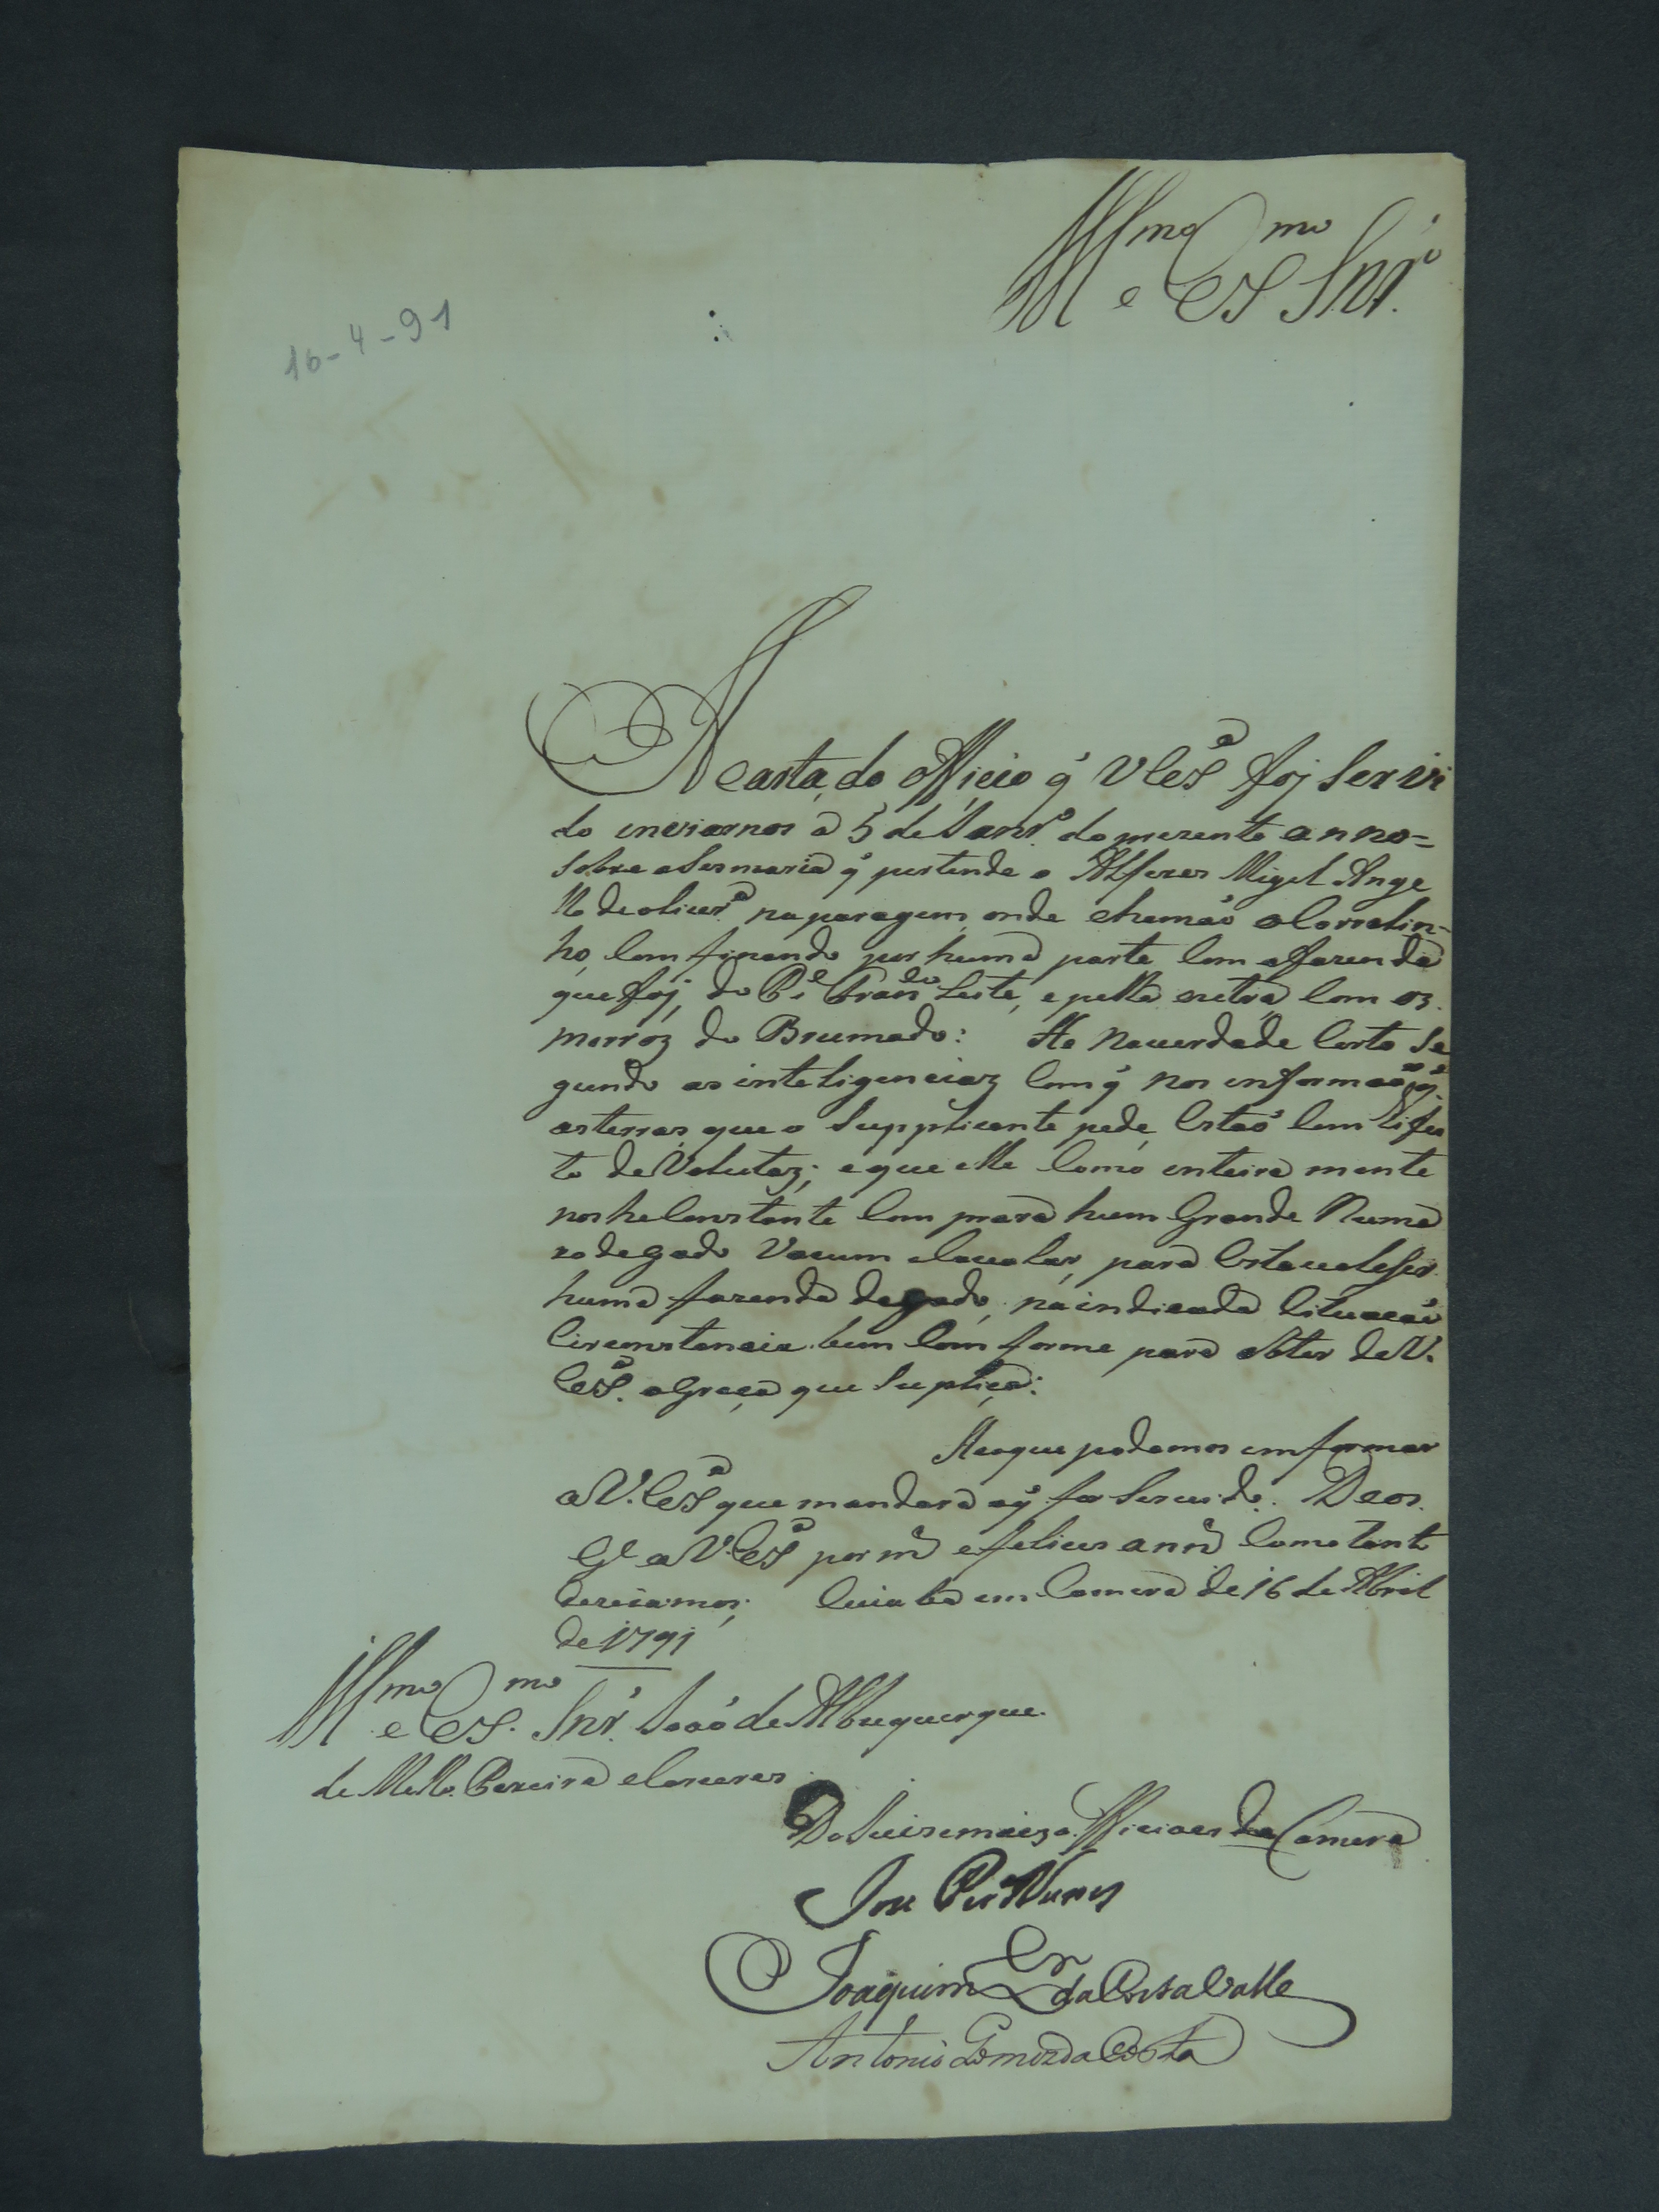 Illmo e Exmo Snr.
16-4-91
A Carta, do officio q̃ V Exa foj Servi
do enviarnos a 5 de Janro do prezente anno=
Sobre a Sesmaria q̃ pertende o Alferes Migel Ange
llo de olivra na paragem, onde chamaõ o Corralin-
ho, Comfinando por huma parte Com a fazenda
que foj, do Pe Leite, e pella outra Com oz
morroz do Brumado: He Naverdade Certo Se
gundo as inteligenciaz Comq̃ nos enformaõ q̃
as terras que o Supplicante pede, Estaõ
to de Volutaz; e que elle Como enteira mente
nos he Constante Com prara hum Grande Nume
ro de gado Vacum e Cavalar, para Estaveleser
huma fazenda de gado, na indicada Situacaõ
Circonstancia bem Comforme para obter de V.
Exa. a Graça que Suplica:
He o que podemos emformar
a V. Exa que mandará o q̃ for Servido. Deos.
Ge a V. Exa por ms e felices anns Como tanto
dezeiamos; Cuiaba em Camera de 16 de Abril
de 1791
Illmo e Exmo. Snr. Joaõ de Albuquerque.
de Mello. Pereira e Caceres
Do Juis e maiz officiaes da Camera
Joze Per Nunes
Joaquim da Costa Valle
Antonio Gomez da Costa